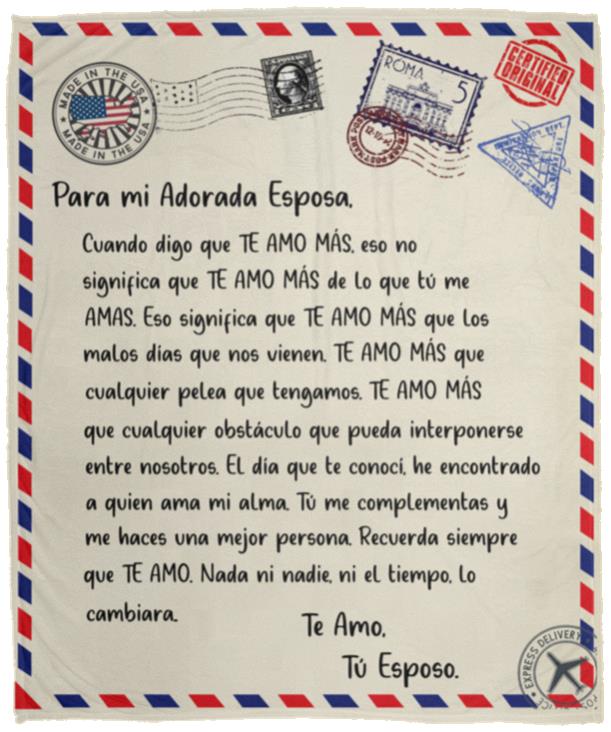 MADE IN THE USA
MADE IN THE USA
ROMA
5
CERTIFIED
ORIGINAL
Para mi Adorada Esposa,
Cuando digo que TE AMO MÁS, eso no
significa que TE AMO MÁS de lo que tú me
AMAS. Eso significa que TE AMO MÁS que los
malos días que nos vienen. TE AMO MÁS que
cualquier pelea que tengamos. TE AMO MÁS
que cualquier obstáculo que pueda interponerse
entre nosotros. El día que te conocí, he encontrado
a quien ama mi alma. Tú me complementas y
me haces una mejor persona. Recuerda siempre
que TE AMO. Nada ni nadie, ni el tiempo, lo
cambiara.
Te Amo,
Tú Esposo.
EXPRESS DELIVERY